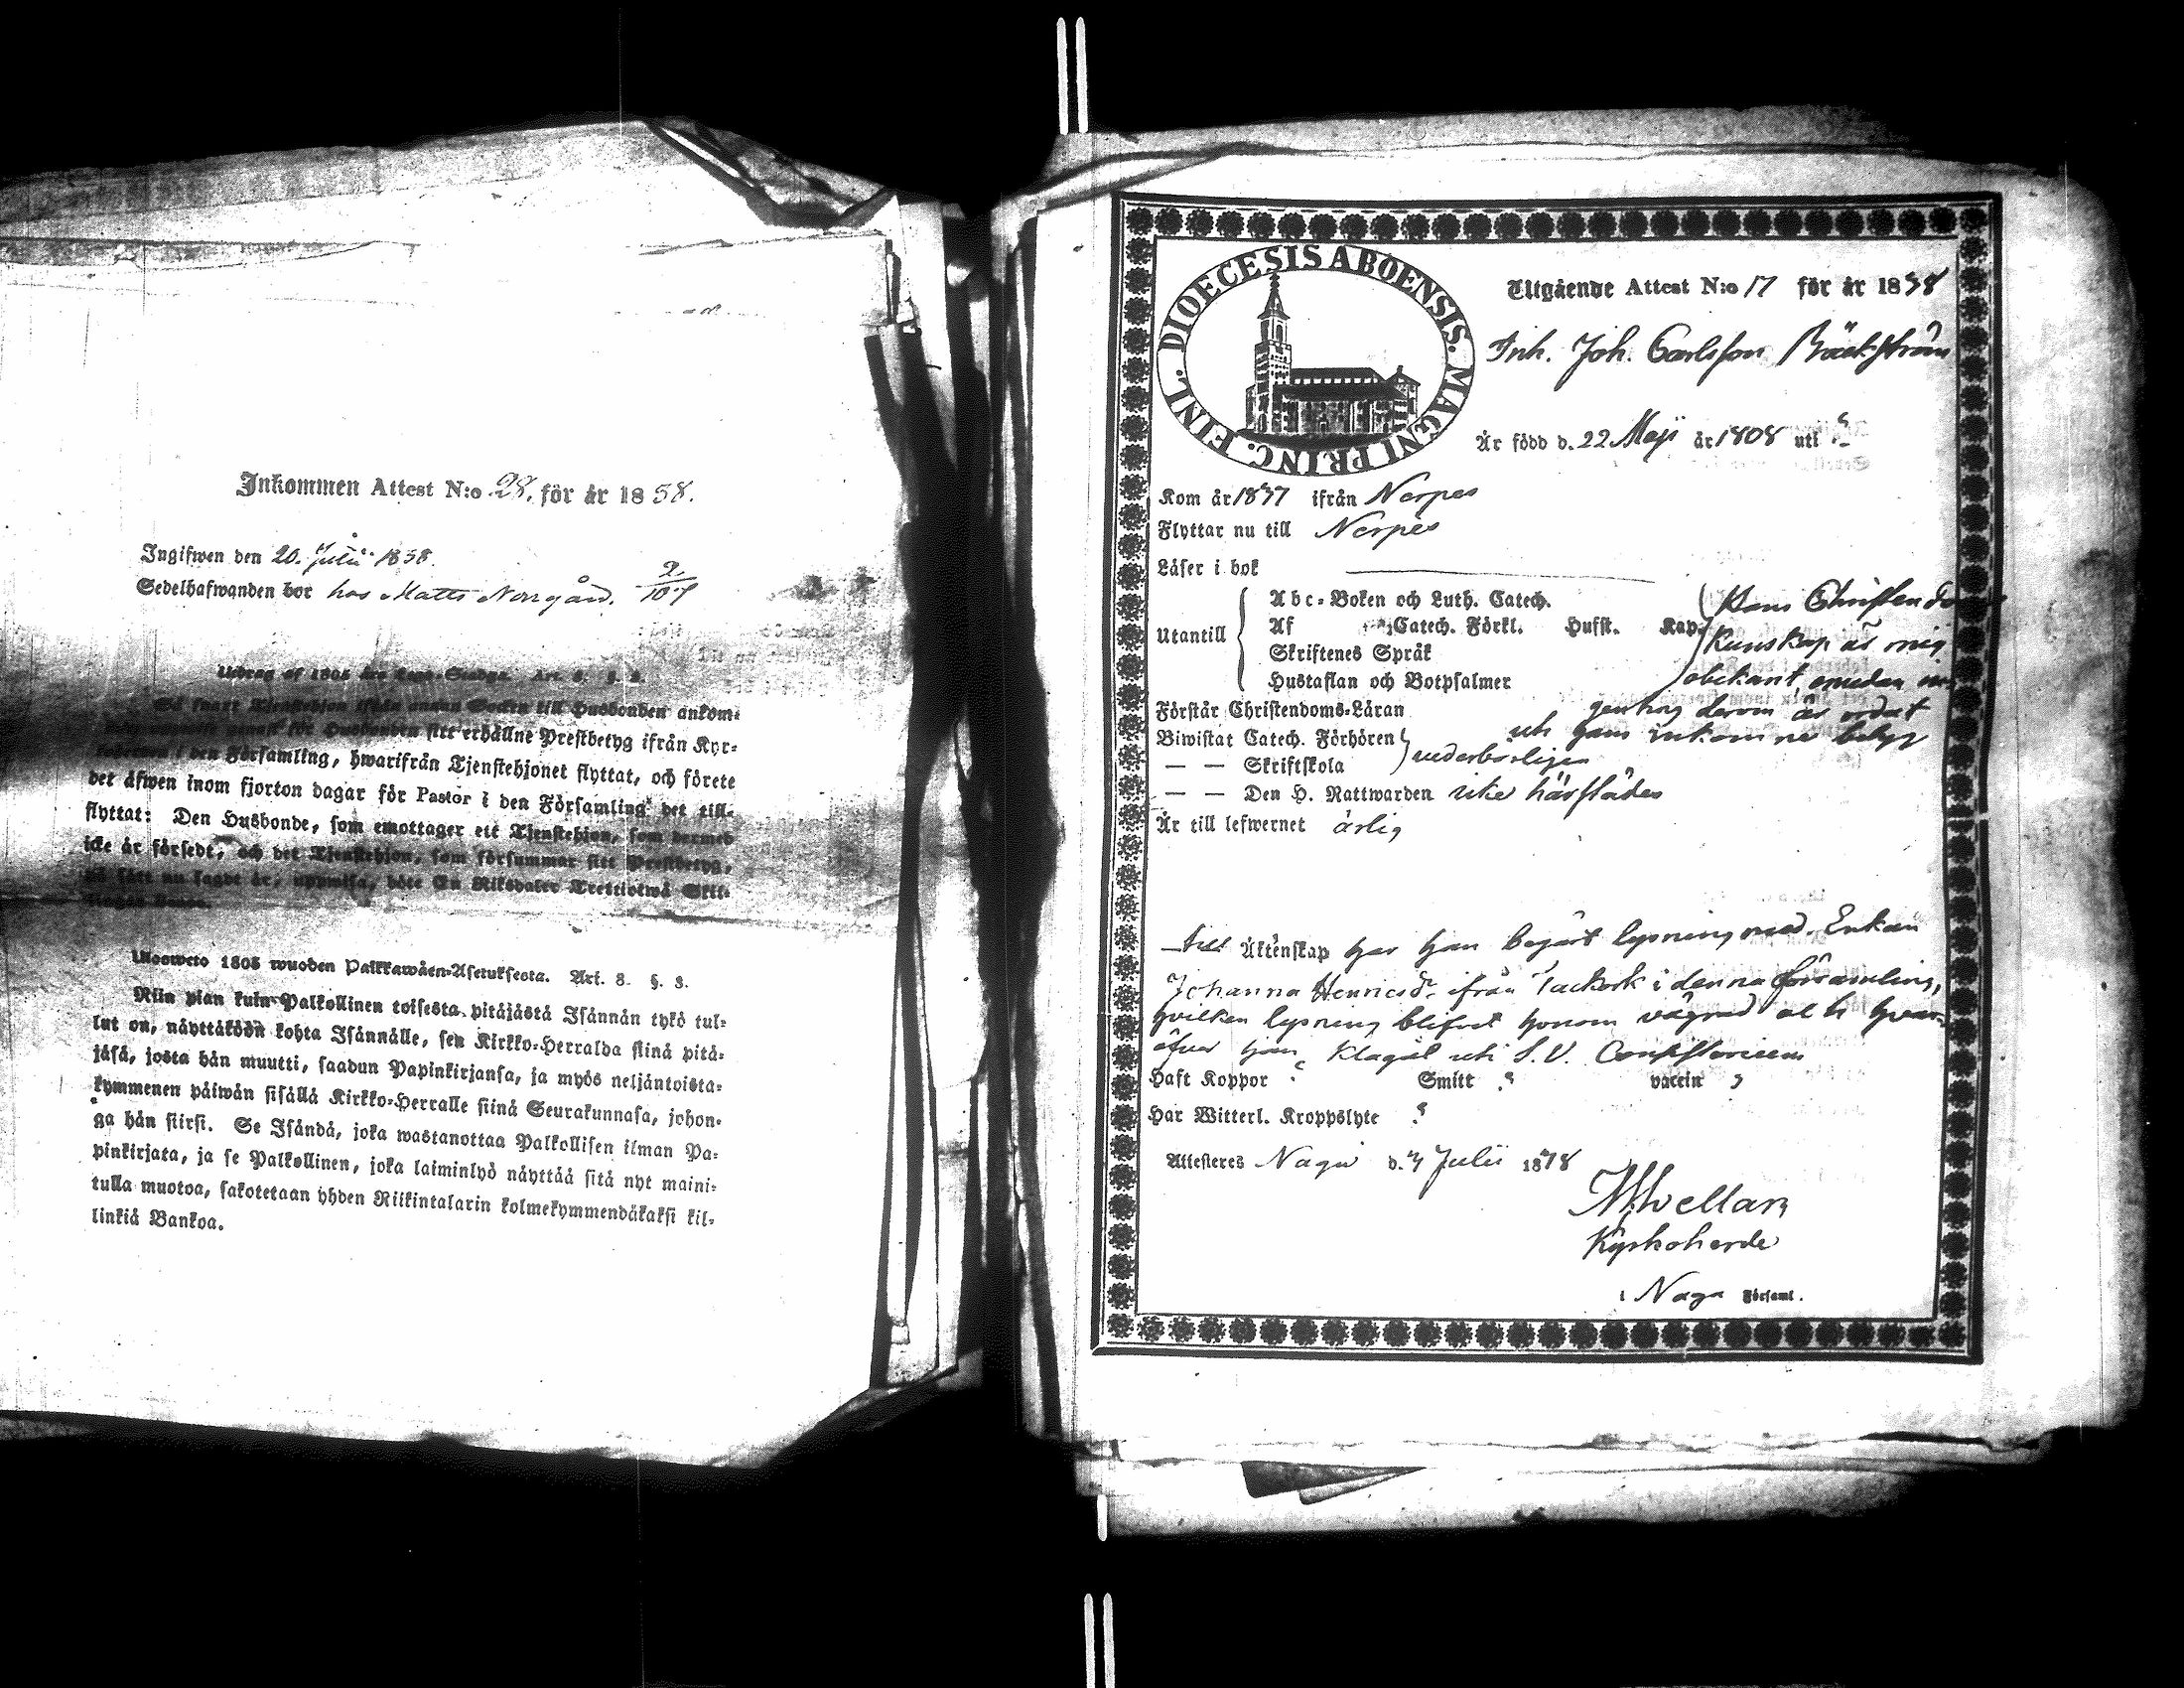 Inkommen Attest N:o 28. för år 1858.
Ingifwen den 20. Julii 1858.
Sedelhafwanden bor hos Matts Norrgård. 2/107
Utdrag af 1805 års Lego-Stadga. Art. 8. §. 3.
Så snart Tjenstehjon ifrån annan Socken till Husbonden ankom-
sitt erhållne Prestbetyg ifrån Kyr-
i den Församling, hwarifrån Tjenstehjonet flyttat, och förete
det äfwen inom fjorton dagar för Pastor i den Församling det till-
flyttat: Den Husbonde, som emottager ett Tjenstehjon, som dermed
icke är försedt, och det Tjenstehjon, som försummar sitt Prestbetyg,
på sätt nu sagdt är, uppwisa, böte En Riksdaler Trettiotwå Skil-
lingar Banco.
Ulosweto 1805 wuoden Palkkawäen-Asetuksesta. Art. 8. §. 3.
Niin pian kuin Palkollinen toisesta pitäjästä Isännän tykö tul-
lut on, näyttäköön kohta Isännälle, sen Kirkko-Herralda siinä pitä-
jäsä, josta hän muutti, saadun Papinkirjansa, ja myös neljäntoista-
kymmenen päiwän sisällä Kirkko-Herralle siinä Seurakunnasa, johon-
ga hän siirsi. Se Isändä, joka wastanottaa Palkollisen ilman Pa-
pinkirjata, ja se Palkollinen, joka laiminlyö näyttää sitä nyt maini-
tulla muotoa, sakotetaan yhden Riikintalarin kolmekymmendäkaksi kil-
linkiä Bankoa.
DIOECESIS ABOENSIS. MAGNI PRINC. FINL.
Utgående Attest N:o 17 för år 1838
Inh. Joh. Carlsson Bäckström
Är född d. 22 Maji år 1808 uti ?
Kom år 1837 ifrån Nerpes
Flyttar nu till Nerpes
Läser i bok
Utantill
Abc-Boken och Luth. Catech.
Af Catech. Förkl. Husst. Kap.
Skriftenes Språk
Hustaflan och Botpsalmer
Hans Christendoms
kunskap är mig
obekant, emedan in-
genting derom är ordat
uti hans inkomne betyg
Förstår Christendoms-Läran
Biwistat Catech. Förhören
— — Skriftskola vederbörligen
— — Den H. Nattwarden icke härstädes
Är till lefwernet ärlig
till Äktenskap har han begärt lysning med Enkan
Johanna Henricsdr ifrån Tackork i denna församling,
hvilken lysning blifvit honom vägrad och hvar-
öfver han klagat uti S. V. Consistorium
Haft Koppor ? Smitt ? vaccin ?
Har Witterl. Kroppslyte ?
Attesteres Nagu d. 4 Julii 1838
Kyrkoherde
i Nagu Församl.